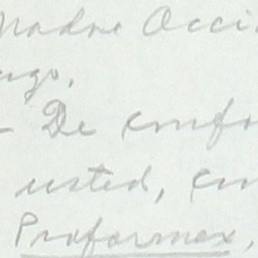 Madre Occi
ngo,
- De confo
usted, con
Proformex,